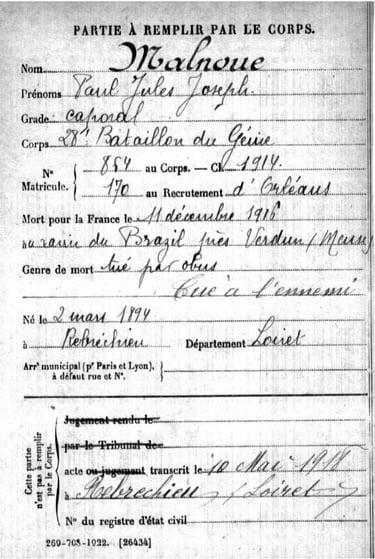 PARTIE À REMPLIR PAR LE CORPS.
Nom Malnoue
Prénoms Paul Jules Joseph
Grade caporal
Corps 28e Bataillon du Génie
N° Matricule. 854 au Corps. — Cl. 1914.
170 au Recrutement d'Orléans
Mort pour la France le 11 décembre 1916
à au ravin du Brazil près Verdun (Meuse)
Genre de mort tué par obus
Tué à l'ennemi
Né le 2 mars 1894
à Rebréchien Département Loiret
Arrt municipal (pr Paris et Lyon), à défaut rue et N°.
Cette partie n'est pas à remplir par le Corps.
Jugement rendu le
par le Tribunal de
acte ou jugement transcrit le 10 Mai 1918
à Rebrechien (Loiret)
N° du registre d'état civil
269-708-1922. [26434]